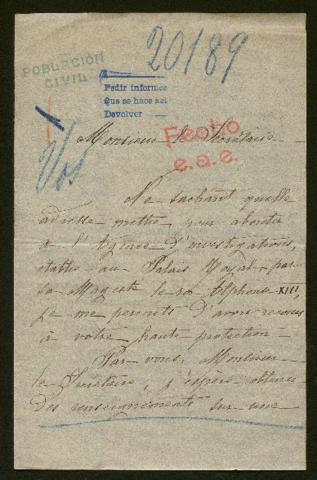 20189
POBLACIÓN
CIVIL
Pedir informes
Que se hace act
Devolver
Fecho
e.a.e.
Monsieur le Secrétaire
Ne sachant quelle
adresse mettre, pour aboutir
à l'Agence d'investigations,
établie au Palais Royal par
Sa Majesté le roi Alphonse XIII,
je me permets d'avoir recours
à votre haute protection
Par vous, Monsieur
le Secrétaire, j'espère obtenir
des renseignements sur une